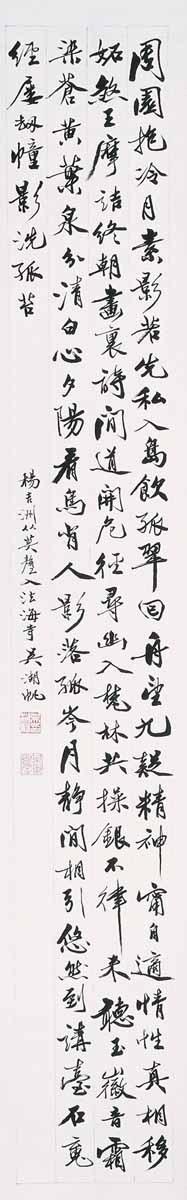 周園抱冷月素影若先私入島飲孤翠回舟望九疑精神甯自適情性真相移
妬煞王摩詰終朝畫裏詩間道開危徑尋幽入梵林共操銀不律未聽玉徽音霜
染蒼黃葉泉分清白心夕陽看鳥背人影落孤岑月靜間相引悠然到講臺石
經屢劫幢影洗孤苔
楊吉洲 入法海寺 吳湖帆